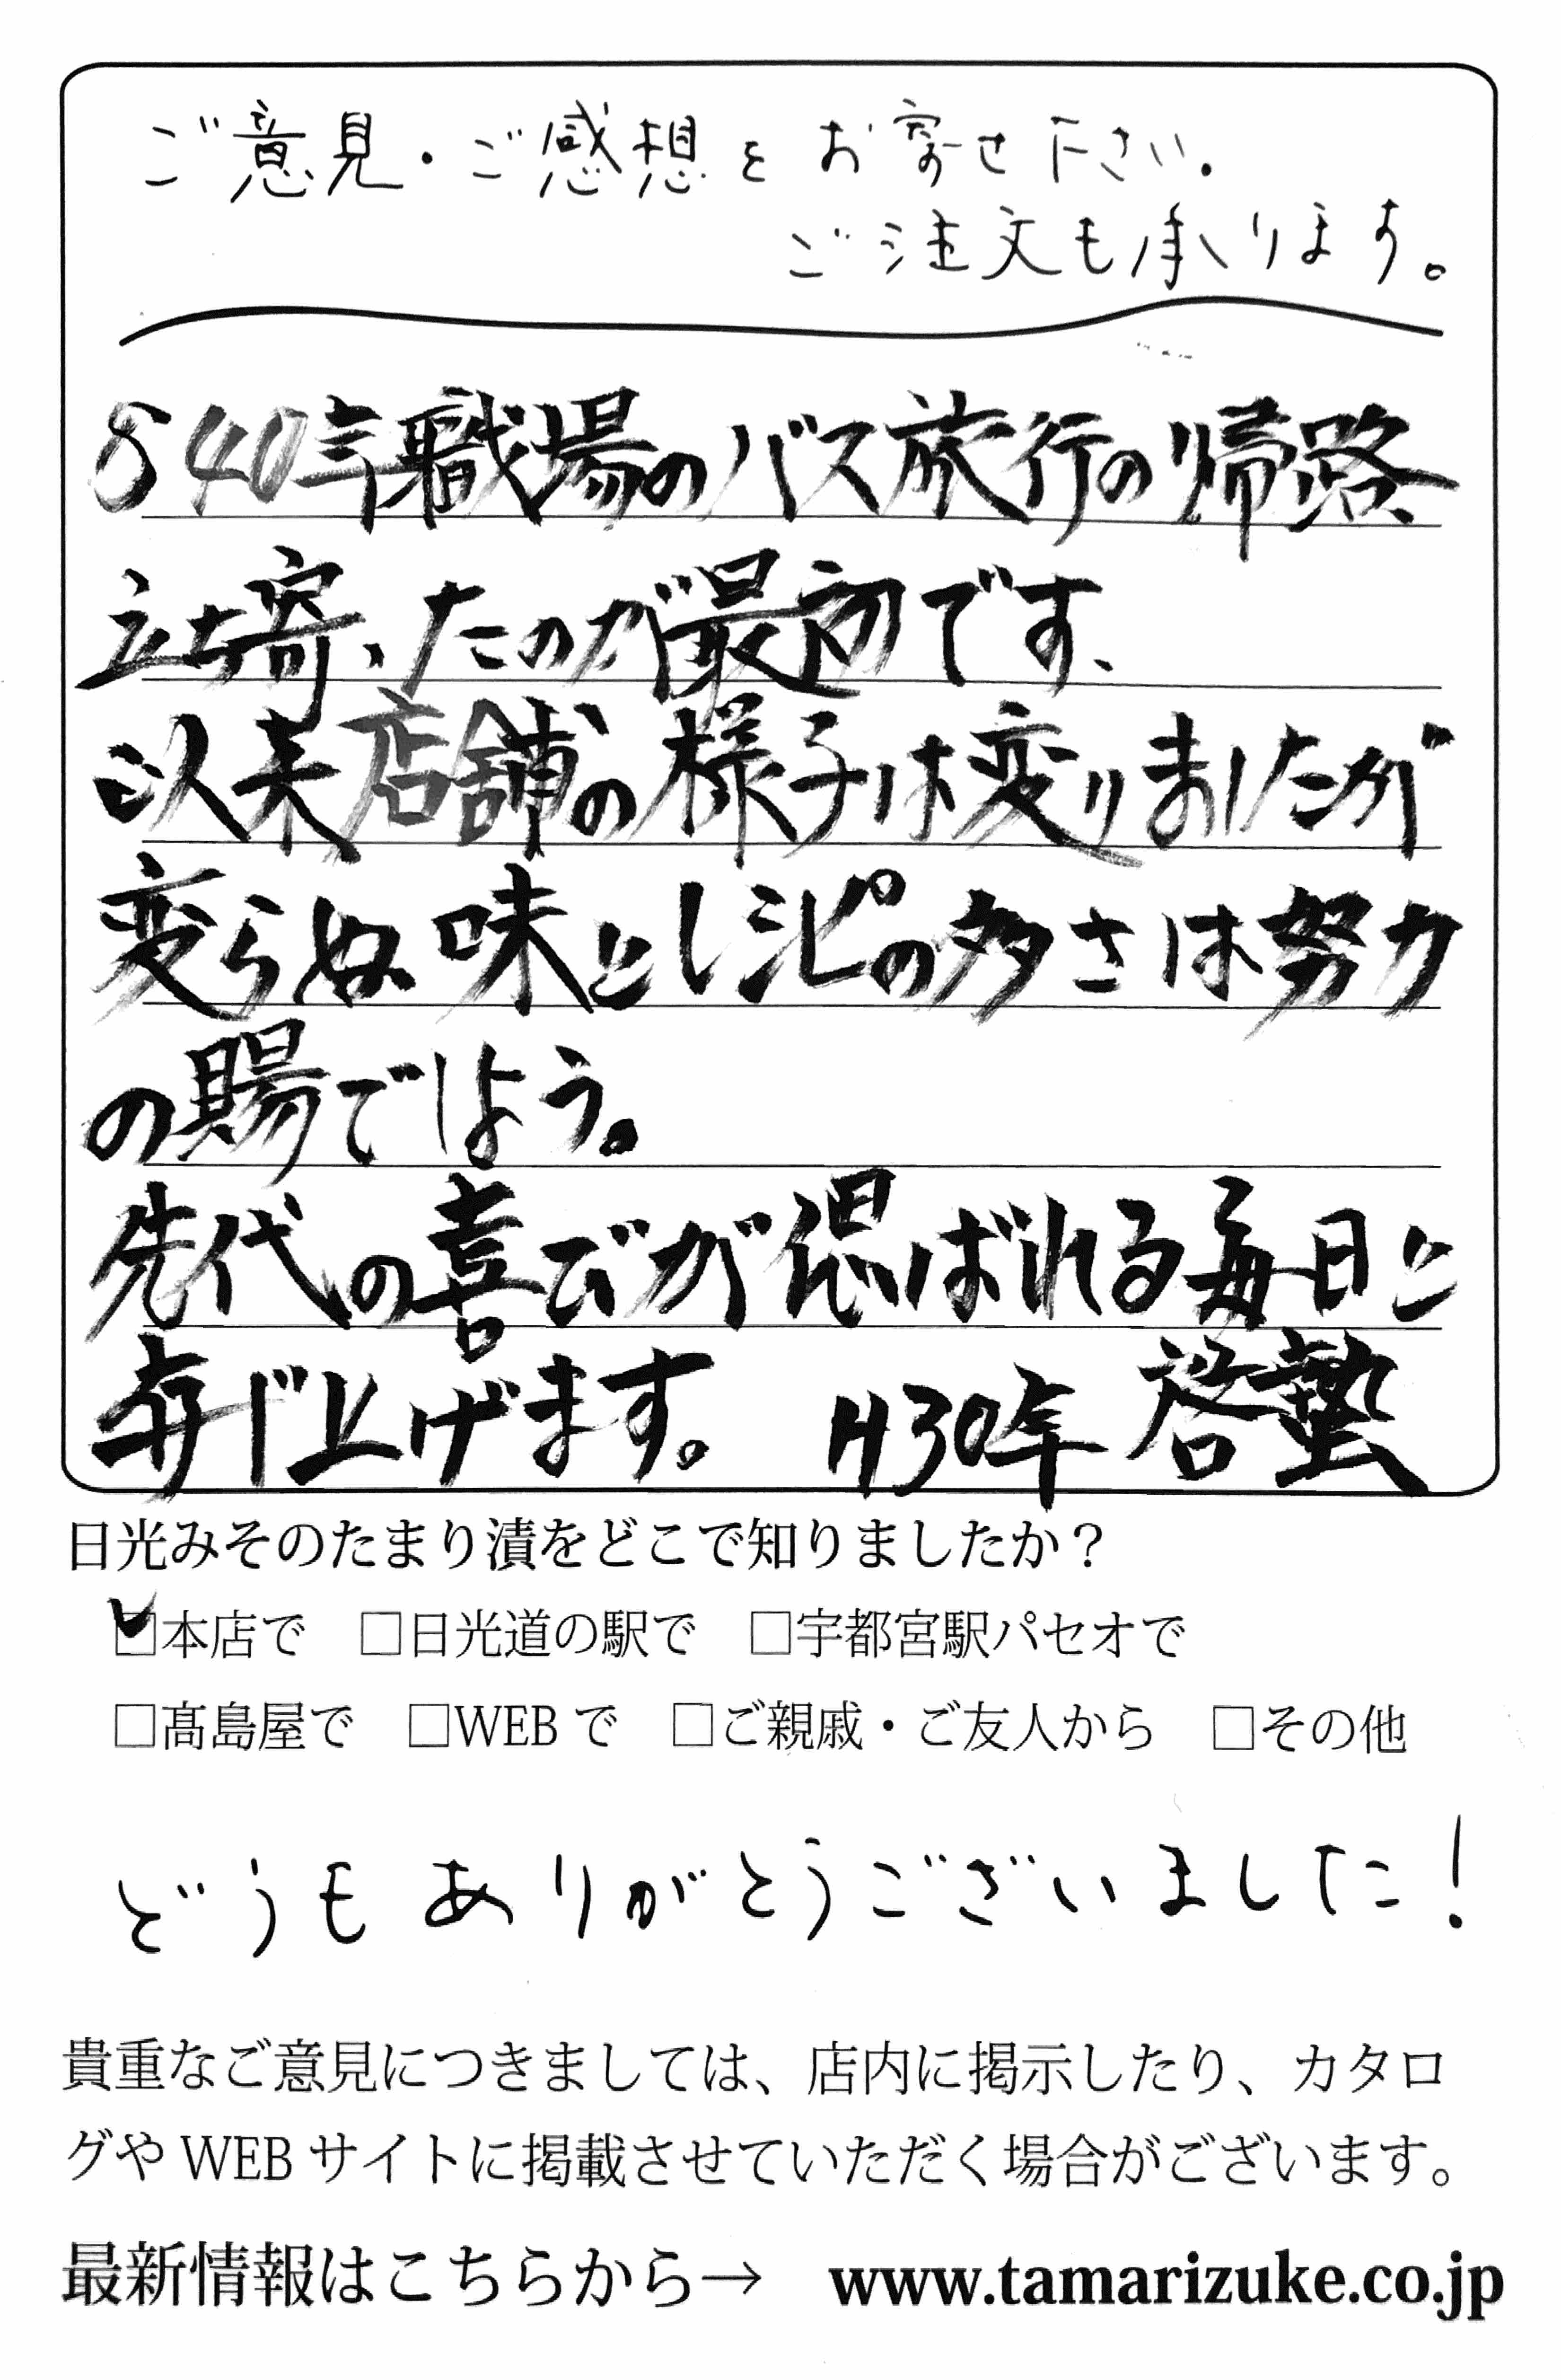 ご意見・ご感想をお寄せ下さい.
ご注文も承ります。
S40年職場のバス旅行の帰路
立ち寄ったのが最初です、
以来店舗の様子は変りましたが
変らぬ味とレシピの多さは努力
の賜でしょう。
先代の喜びが偲ばれる毎日と
存じ上げます。 H30年 啓蟄
日光みそのたまり漬をどこで知りましたか？
☑本店で □日光道の駅で □宇都宮駅パセオで
□髙島屋で □WEBで □ご親戚・ご友人から □その他
どうもありがとうございました！
貴重なご意見につきましては、店内に掲示したり、カタロ
グやWEBサイトに掲載させていただく場合がございます。
最新情報はこちらから→ www.tamarizuke.co.jp